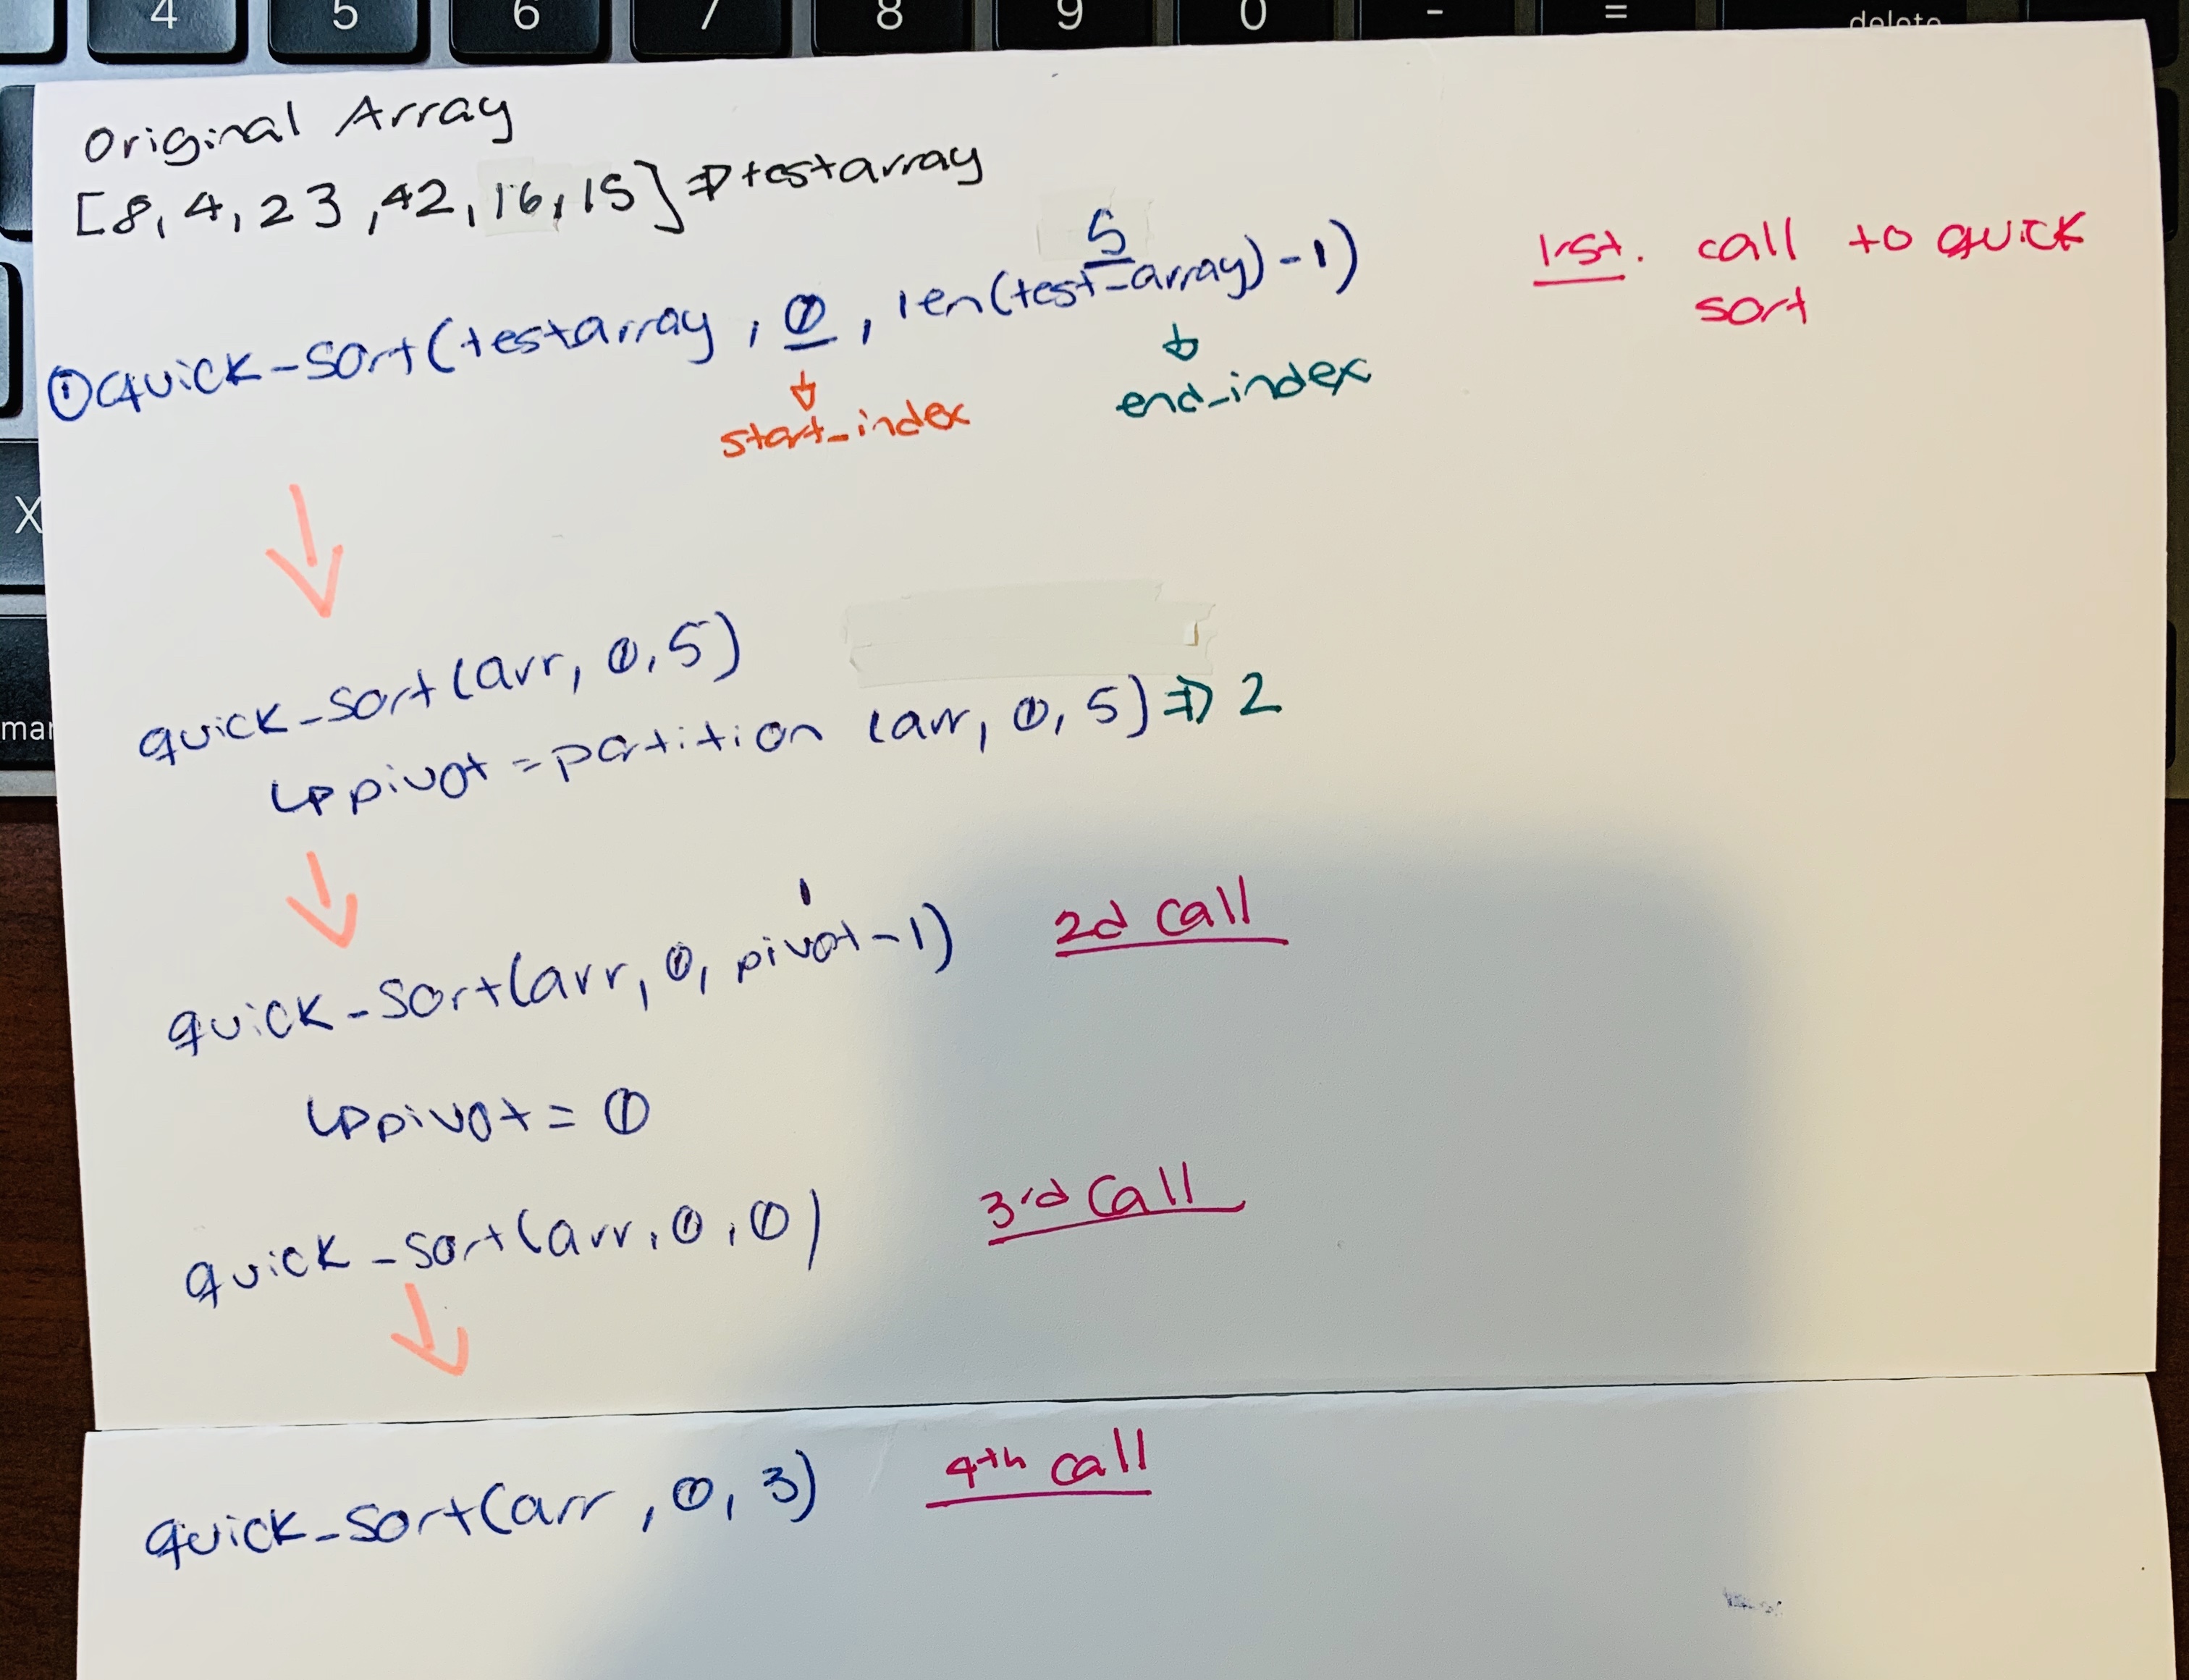 4 5 6 7 8 9 0 - = delete
X
mar
Original Array
[8, 4, 23, 42, 16, 15] ⇒ testarray
5
① quick-sort(testarray, 0, len(test-array) -1)
1rst. call to quick
sort
↓ ↓
start_index end_index
quick-sort(arr, 0, 5)
↳ pivot = partition (arr, 0, 5) ⇒ 2
1
quick-sort(arr, 0, pivot-1) 2d call
↳ pivot = 0
quick-sort(arr, 0, 0) 3rd call
quick-sort(arr, 0, 3) 4th call